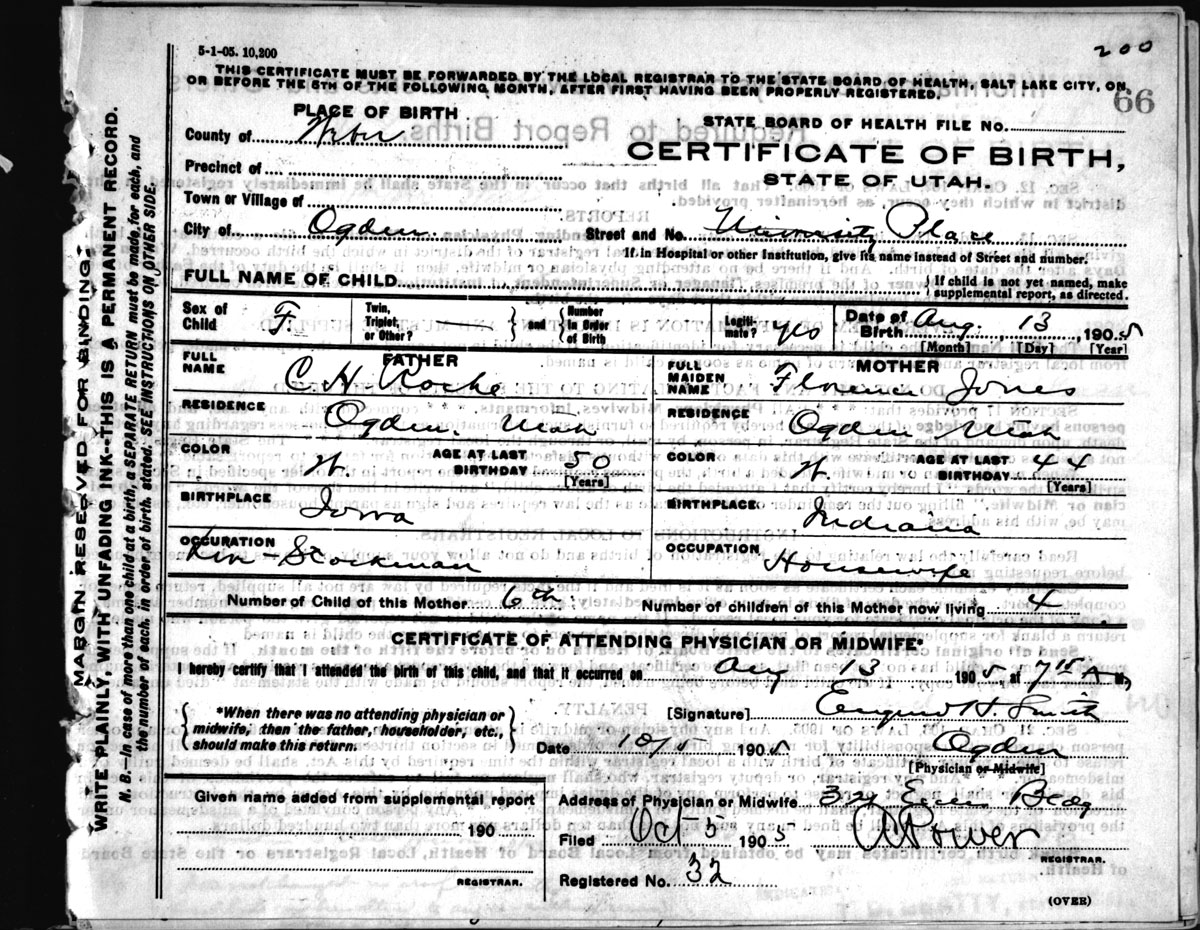 5-1-05. 10,200
200
THIS CERTIFICATE MUST BE FORWARDED BY THE LOCAL REGISTRAR TO THE STATE BOARD OF HEALTH, SALT LAKE CITY, ON
OR BEFORE THE 5TH OF THE FOLLOWING MONTH, AFTER FIRST HAVING BEEN PROPERLY REGISTERED.
66
PLACE OF BIRTH
STATE BOARD OF HEALTH FILE NO.
County of Weber
CERTIFICATE OF BIRTH,
Precinct of
STATE OF UTAH.
Town or Village of
City of Ogden Street and No. University Place
If in Hospital or other Institution, give its name instead of Street and number.
FULL NAME OF CHILD
If child is not yet named, make
supplemental report, as directed.
Sex of Child F
Twin, Triplet, or Other? — and Number in Order of Birth
Legitimate? yes
Date of Birth Aug. 13 1905
[Month] [Day] [Year]
FATHER
FULL NAME C H Roche
RESIDENCE Ogden Utah
COLOR W. AGE AT LAST BIRTHDAY 50
[Years]
BIRTHPLACE Iowa
OCCUPATION Live-Stockman
MOTHER
FULL MAIDEN NAME Florence Jones
RESIDENCE Ogden Utah
COLOR W. AGE AT LAST BIRTHDAY 44
[Years]
BIRTHPLACE Indiana
OCCUPATION Housewife
Number of Child of this Mother 6th Number of children of this Mother now living 4
CERTIFICATE OF ATTENDING PHYSICIAN OR MIDWIFE*
I hereby certify that I attended the birth of this child, and that it occurred on Aug 13 1905, at 7 15 A M,
*When there was no attending physician or
midwife, then the father, householder, etc.,
should make this return.
[Signature] H Smith
Date 10/ 1905 Ogden
[Physician or Midwife]
Given name added from supplemental report
190
REGISTRAR.
Address of Physician or Midwife Eccles Bldg
Filed Oct 5 1905 Power
REGISTRAR.
Registered No. 32
(OVER)
MARGIN RESERVED FOR BINDING
WRITE PLAINLY, WITH UNFADING INK--THIS IS A PERMANENT RECORD.
N. B.—In case of more than one child at a birth, a SEPARATE RETURN must be made for each, and
the number of each, in order of birth, stated. SEE INSTRUCTIONS ON OTHER SIDE.